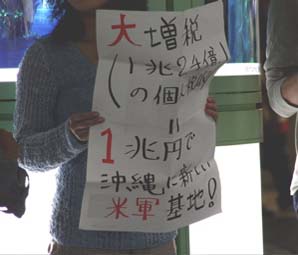 大増税
(1兆24億
の個
=
1兆円で
沖縄に新しい
米軍基地!